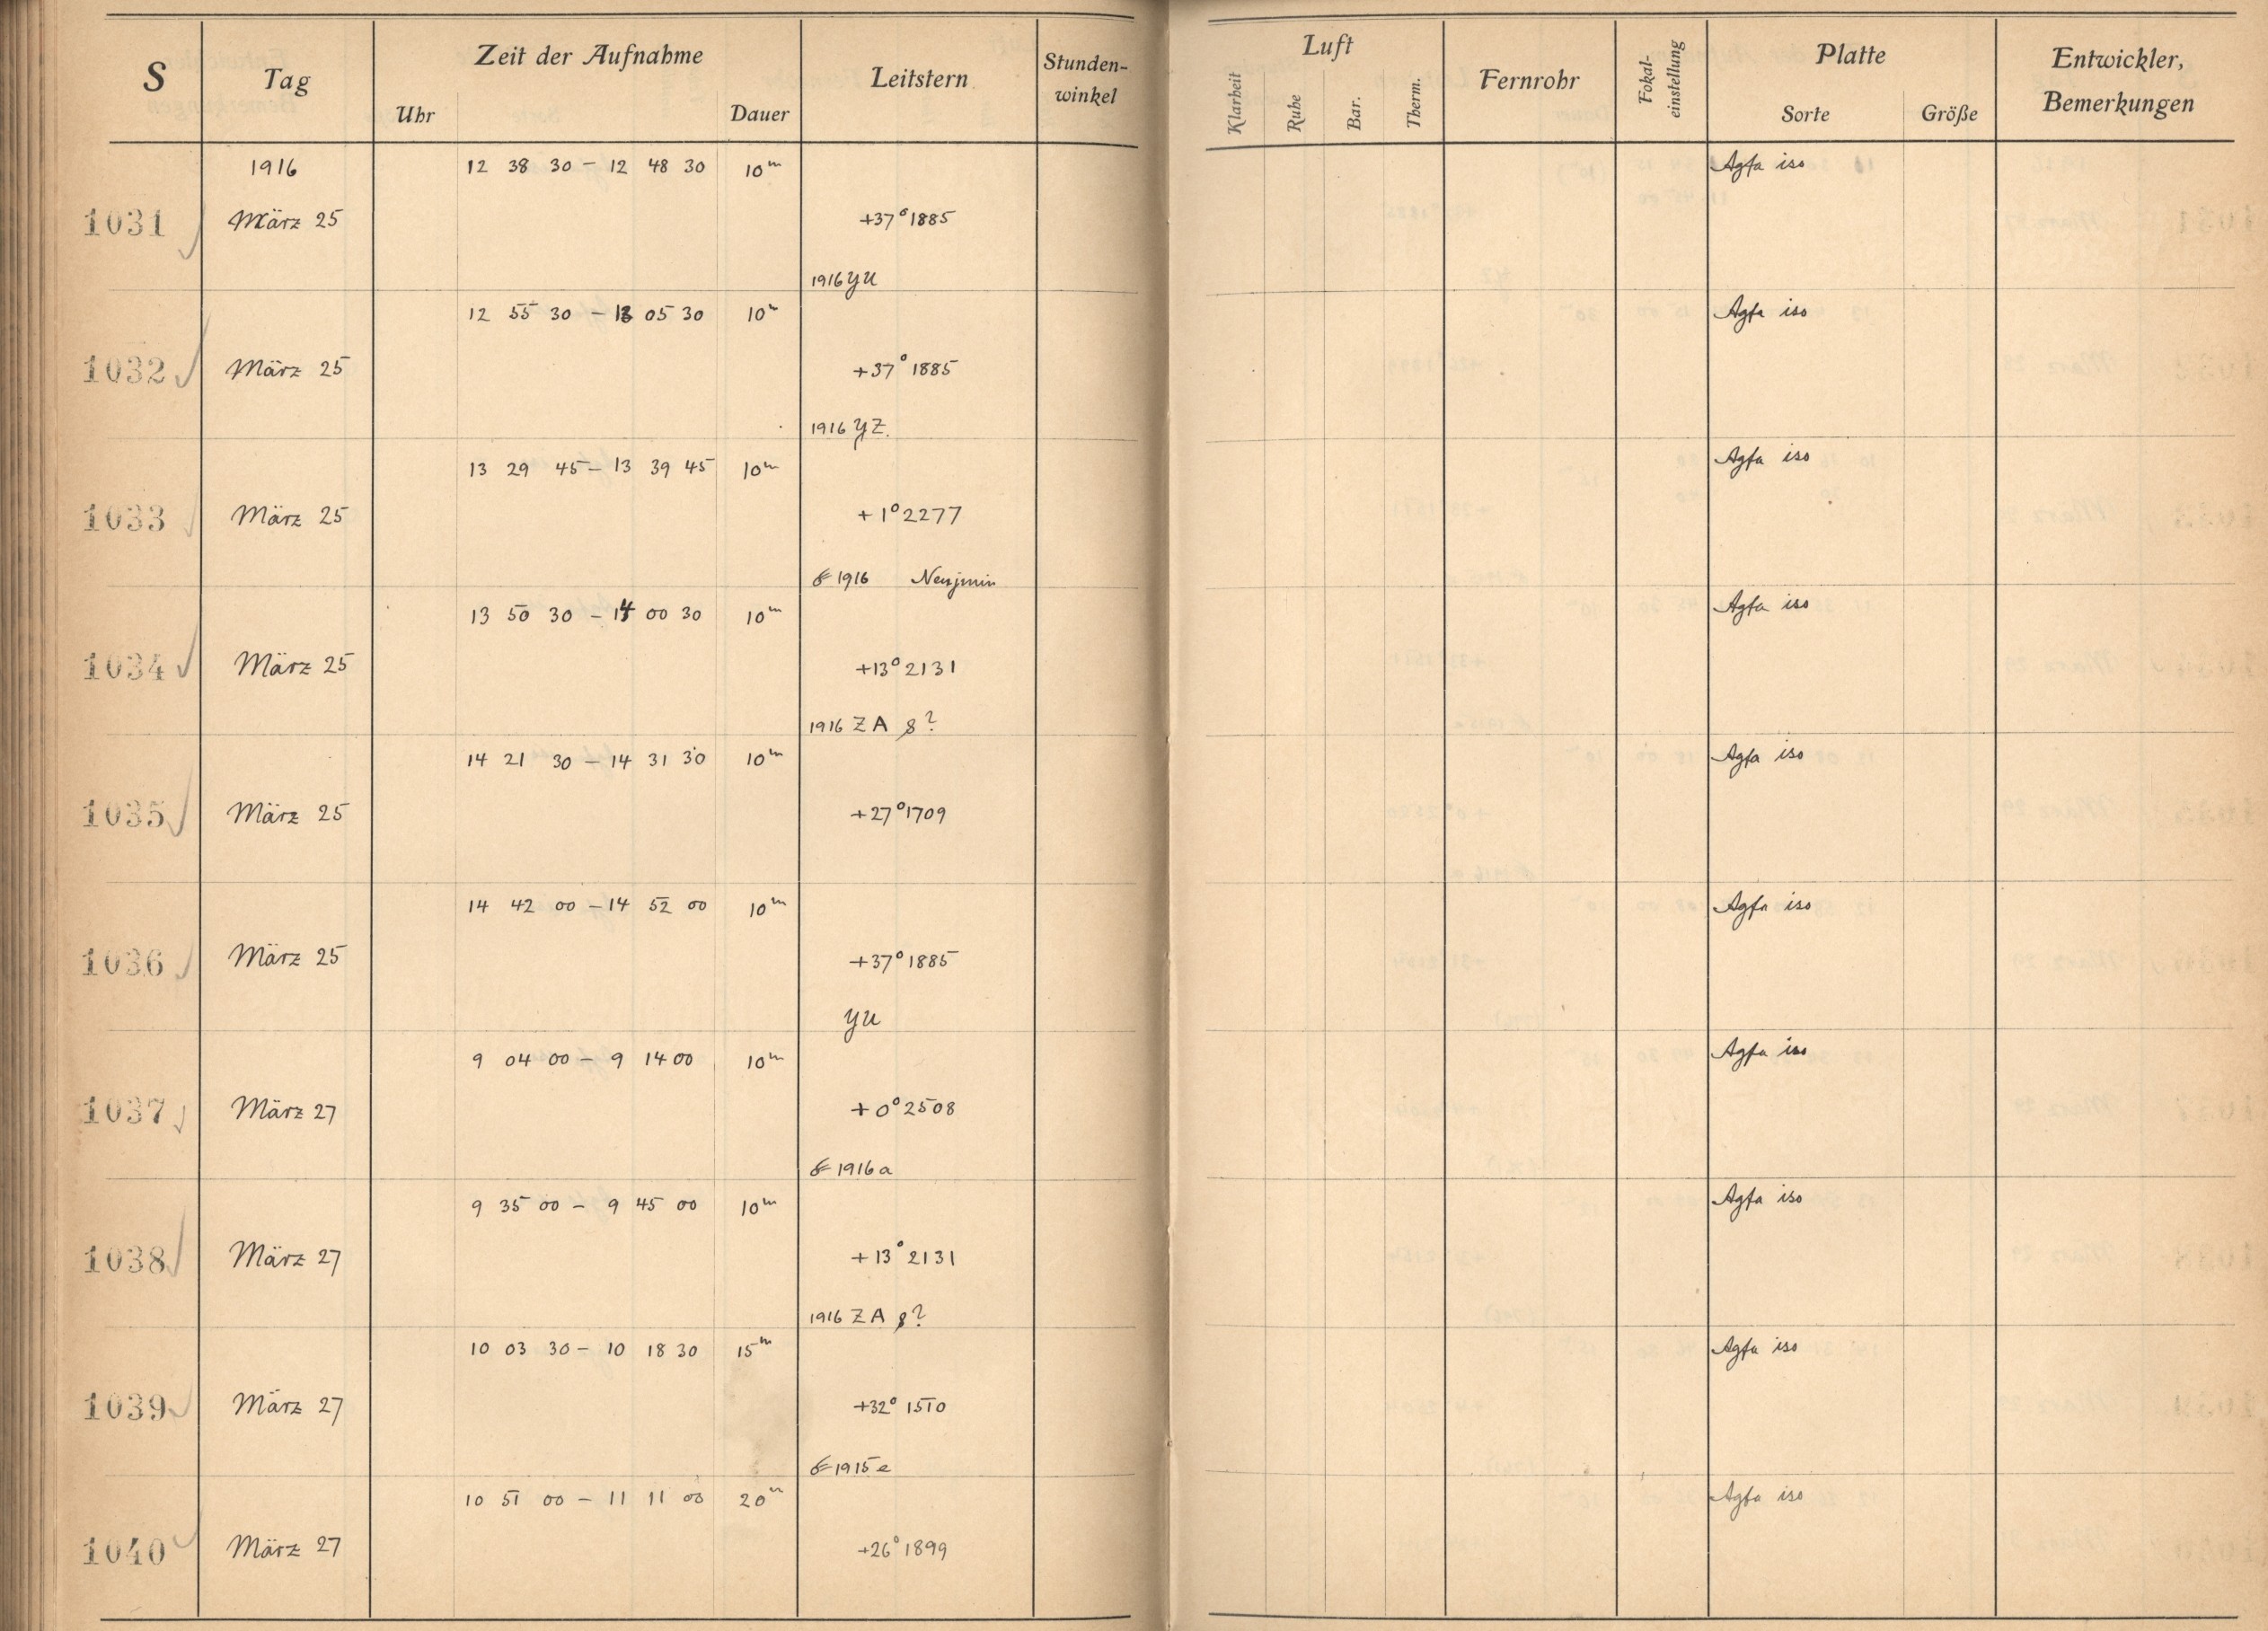 S Tag Zeit der Aufnahme Leitstern Stunden-winkel Luft Fernrohr Fokal-einstellung Platte Entwickler, Bemerkungen
Uhr Dauer Klarheit Ruhe Bar. Therm. Sorte Größe
1916 12 38 30 – 12 48 30 10m Agfa iso
1031 März 25 +37° 1885
1916 YU
12 55 30 – 13 05 30 10m Agfa iso
1032 März 25 +37° 1885
1916 YZ
13 29 45 – 13 39 45 10m Agfa iso
1033 März 25 +1° 2277
1916 Neujmin
13 50 30 – 14 00 30 10m Agfa iso
1034 März 25 +13° 2131
1916 ZA ?
14 21 30 – 14 31 30 10m Agfa iso
1035 März 25 +27° 1709
14 42 00 – 14 52 00 10m Agfa iso
1036 März 25 +37° 1885
YU
9 04 00 – 9 14 00 10m Agfa iso
1037 März 27 +0° 2508
1916 a
9 35 00 – 9 45 00 10m Agfa iso
1038 März 27 +13° 2131
1916 ZA ?
10 03 30 – 10 18 30 15m Agfa iso
1039 März 27 +32° 1510
1915 e
10 51 00 – 11 11 00 20m Agfa iso
1040 März 27 +26° 1899